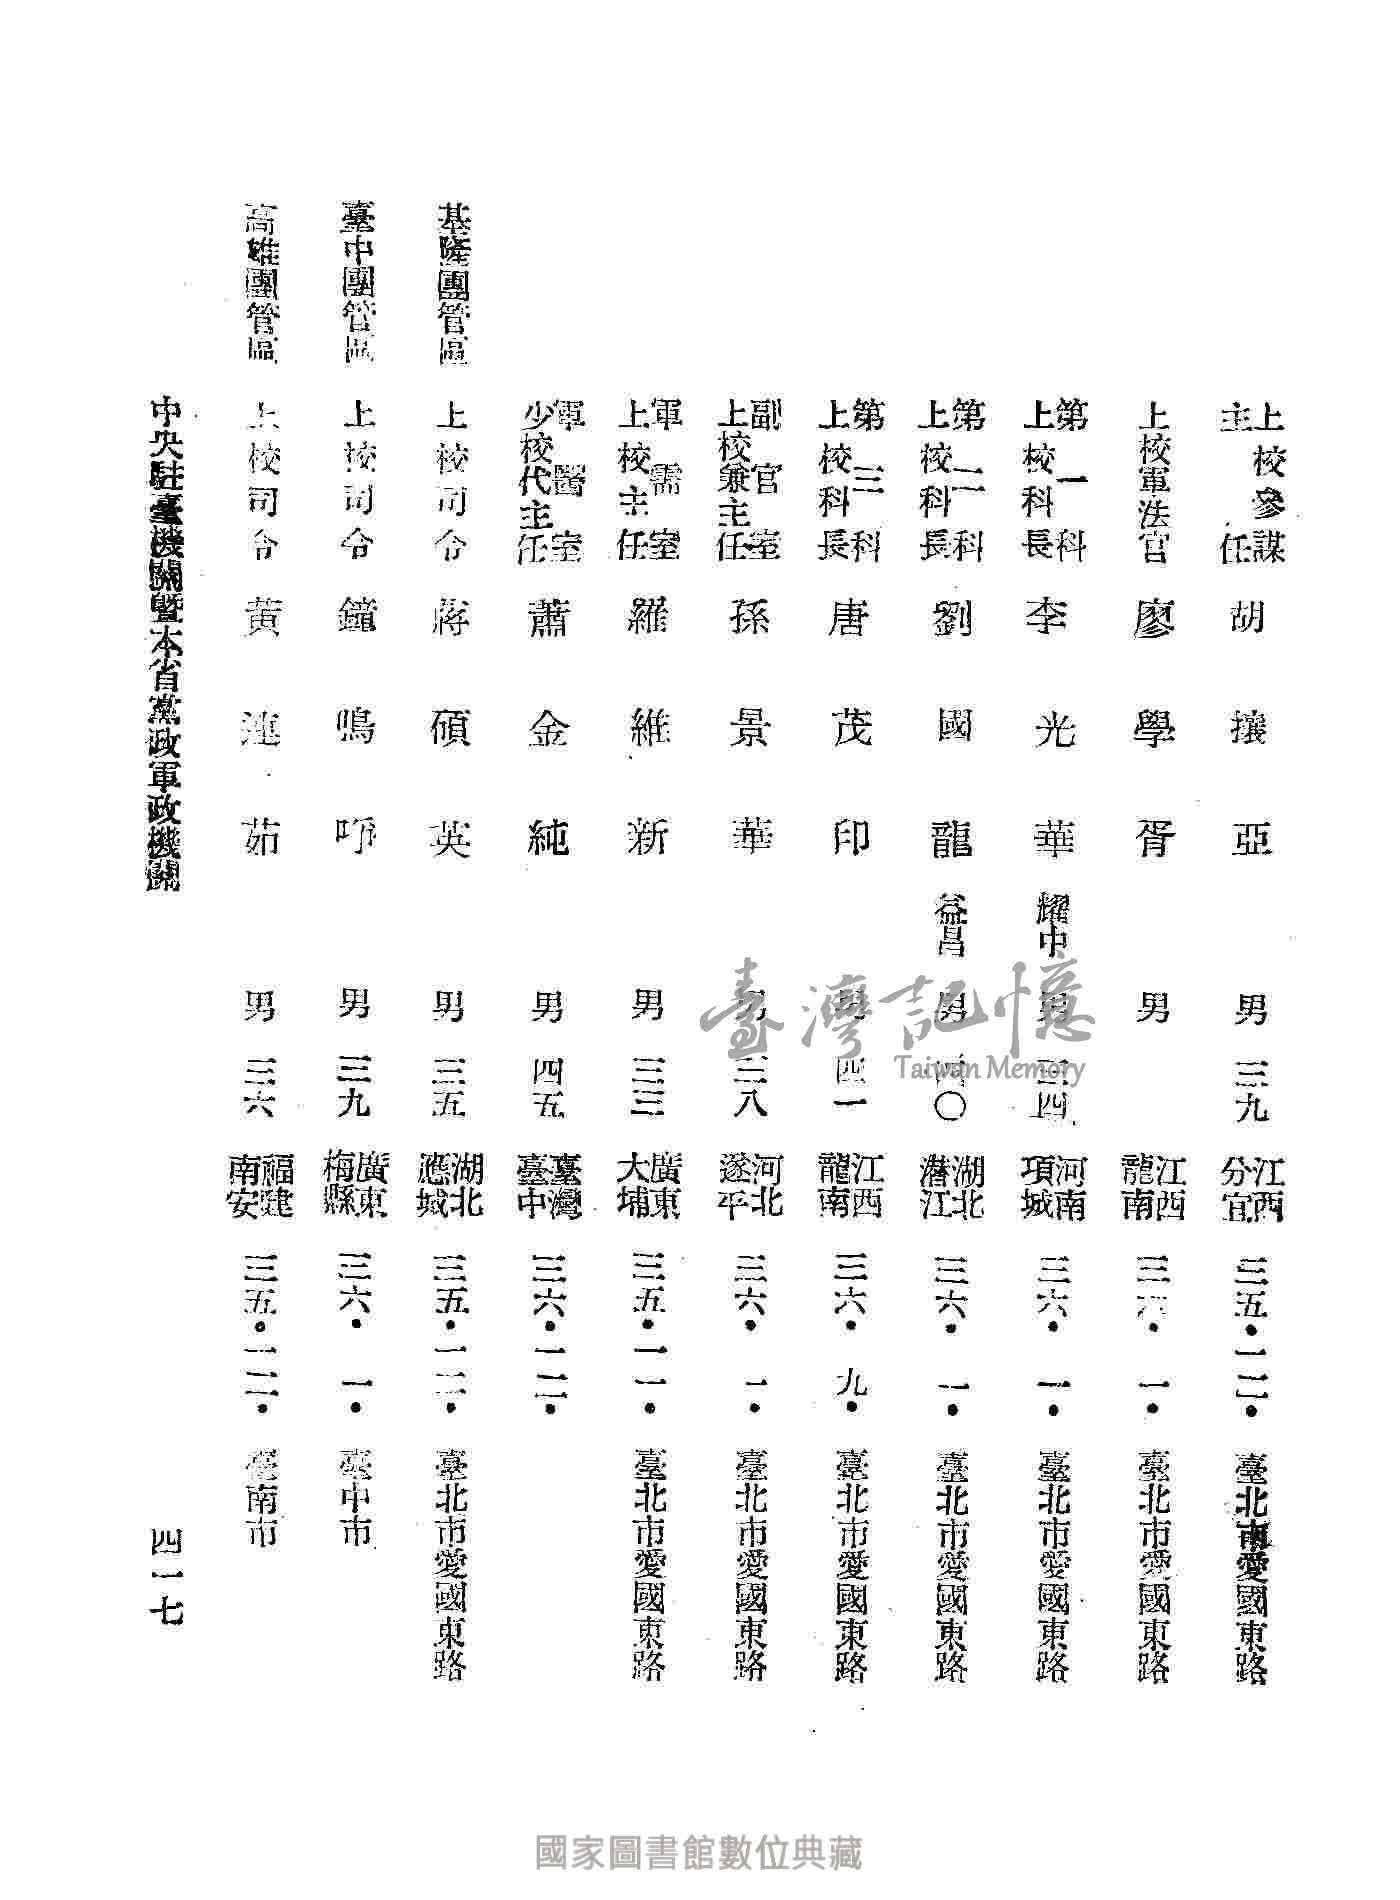 上校參謀主任 胡攘亞 男 三九 江西分宜 三五·一二· 臺北市愛國東路
上校軍法官 廖學胥 男 江西龍南 三六·一· 臺北市愛國東路
第一科上校科長 李光華 耀中 男 三四 河南項城 三六·一· 臺北市愛國東路
第二科上校科長 劉國龍 益昌 男 四〇 湖北潛江 三六·一· 臺北市愛國東路
第三科上校科長 唐茂印 男 四一 江西龍南 三六·九· 臺北市愛國東路
副官室上校兼主任 孫景華 男 三八 河北遂平 三六·一· 臺北市愛國東路
軍需室上校主任 羅維新 男 三三 廣東大埔 三五·一一· 臺北市愛國東路
軍醫室少校代主任 蕭金純 男 四五 臺灣臺中 三六·一二·
基隆團管區 上校司令 蔣碩英 男 三五 湖北應城 三五·一二· 臺北市愛國東路
臺中團管區 上校司令 鐘鳴 男 三九 廣東梅縣 三六·一· 臺中市
高雄團管區 上校司令 黃蓮茹 男 三六 福建南安 三五·一二· 臺南市
中央駐臺機關暨本省黨政軍政機關
四一七
臺灣記憶
Taiwan Memory
國家圖書館數位典藏